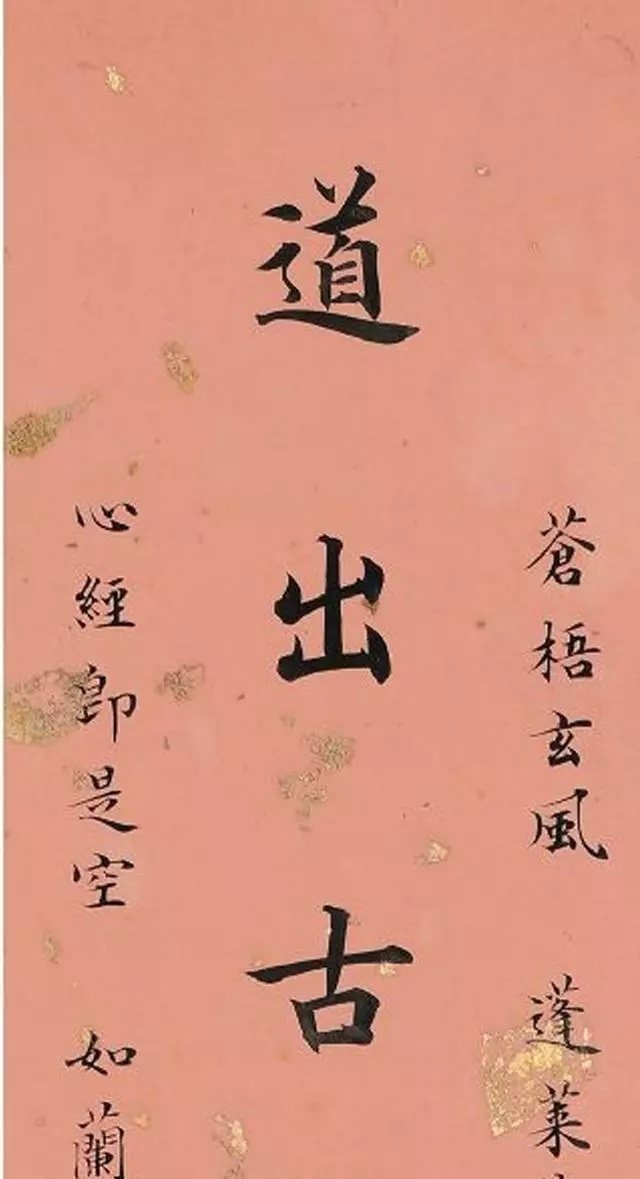 蒼梧玄風 蓬莱
道出古
心經即是空 如蘭